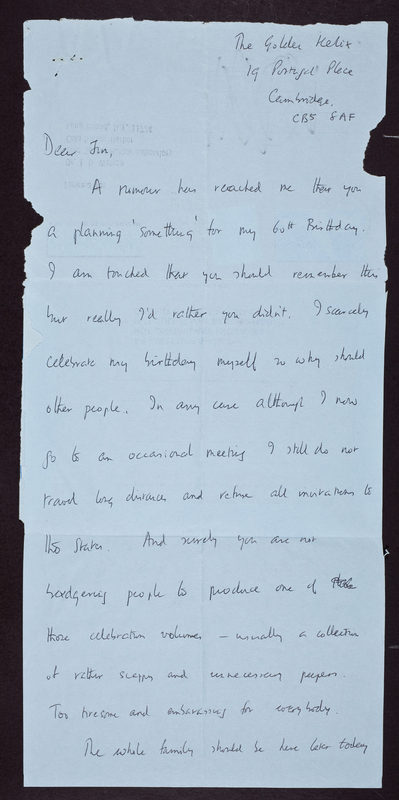 The Golden Helix
19 Portugal Place
Cambridge.
CB5 8AF
Dear Jim,
A rumour has reached me that you
a planning 'something' for my 60th Birthday.
I am touched that you should remember this
but really I'd rather you didn't. I scarcely
celebrate my birthday myself so why should
other people. In any case although I now
go to an occasional meeting I still do not
travel long distances and refuse all invitations to
the States. And surely you are not
badgering people to produce one of
those celebration volumes – usually a collection
of rather scrappy and unnecessary papers.
Too tiresome and embarassing for everybody.
The whole family should be here later today